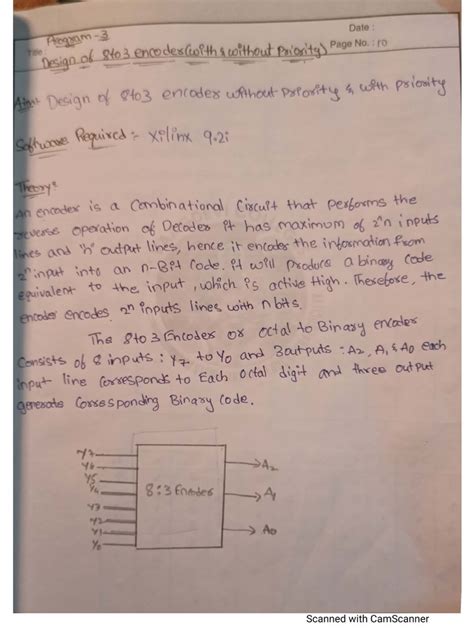 Program-3
Date :
Title: Design of 8to3 encoder(with & without Priority) Page No. : 10
Aim:- Design of 8to3 encoder without Priority & with priority
Software Required :- Xilinx 9.2i
Theory:-
An encoder is a Combinational Circuit that performs the
reverse operation of Decoder it has maximum of 2^n inputs
lines and 'n' output lines, hence it encodes the information from
2^n input into an n-Bit Code. it will produce a binary code
equivalent to the input, which is active High. Therefore, the
encoder encodes 2^n inputs lines with n bits.
The 8to3 Encoder or octal to Binary encoder
Consists of 8 inputs : Y7 to Y0 and 3outputs : A2, A1 & A0 each
input line Corresponds to Each octal digit and three output
generate Corresponding Binary Code.
Y7
Y6
Y5
Y4
Y3
Y2
Y1
Y0
8:3 Encoder
A2
A1
A0
Scanned with CamScanner